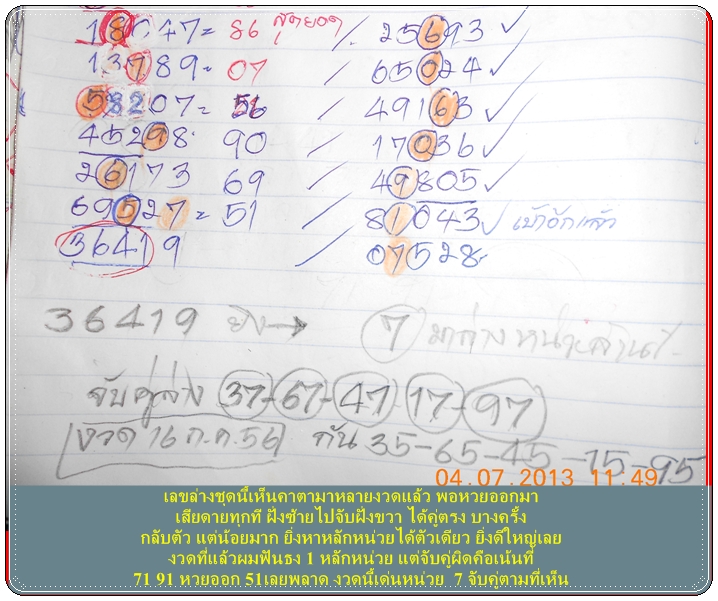 18047= 86 สุดยอด / 25693 ✓
13789= 07 / 65024 ✓
58207= 56 / 49163 ✓
45298 90 / 17036 ✓
26173 69 / 49805 ✓
69527= 51 / 81043 ✓ เข้าอีกแล้ว
36419 / 07528
36419 ยิง→ 7
จับคู่ล่าง 37-67-47-17-97
งวด 16 ก.ค.56 กัน 35-65-45-15-95
04.07.2013 11:49
เลขล่างชุดนี้เห็นคาตามาหลายงวดแล้ว พอหวยออกมา
เสียดายทุกที ฝั่งซ้ายไปจับฝั่งขวา ได้คู่ตรง บางครั้ง
กลับตัว แต่น้อยมาก ยิ่งหาหลักหน่วยได้ตัวเดียว ยิ่งดีใหญ่เลย
งวดที่แล้วผมฟันธง 1 หลักหน่วย แต่จับคู่ผิดคือเน้นที่
71 91 หวยออก 51เลยพลาด งวดนี้เด่นหน่วย 7 จับคู่ตามที่เห็น